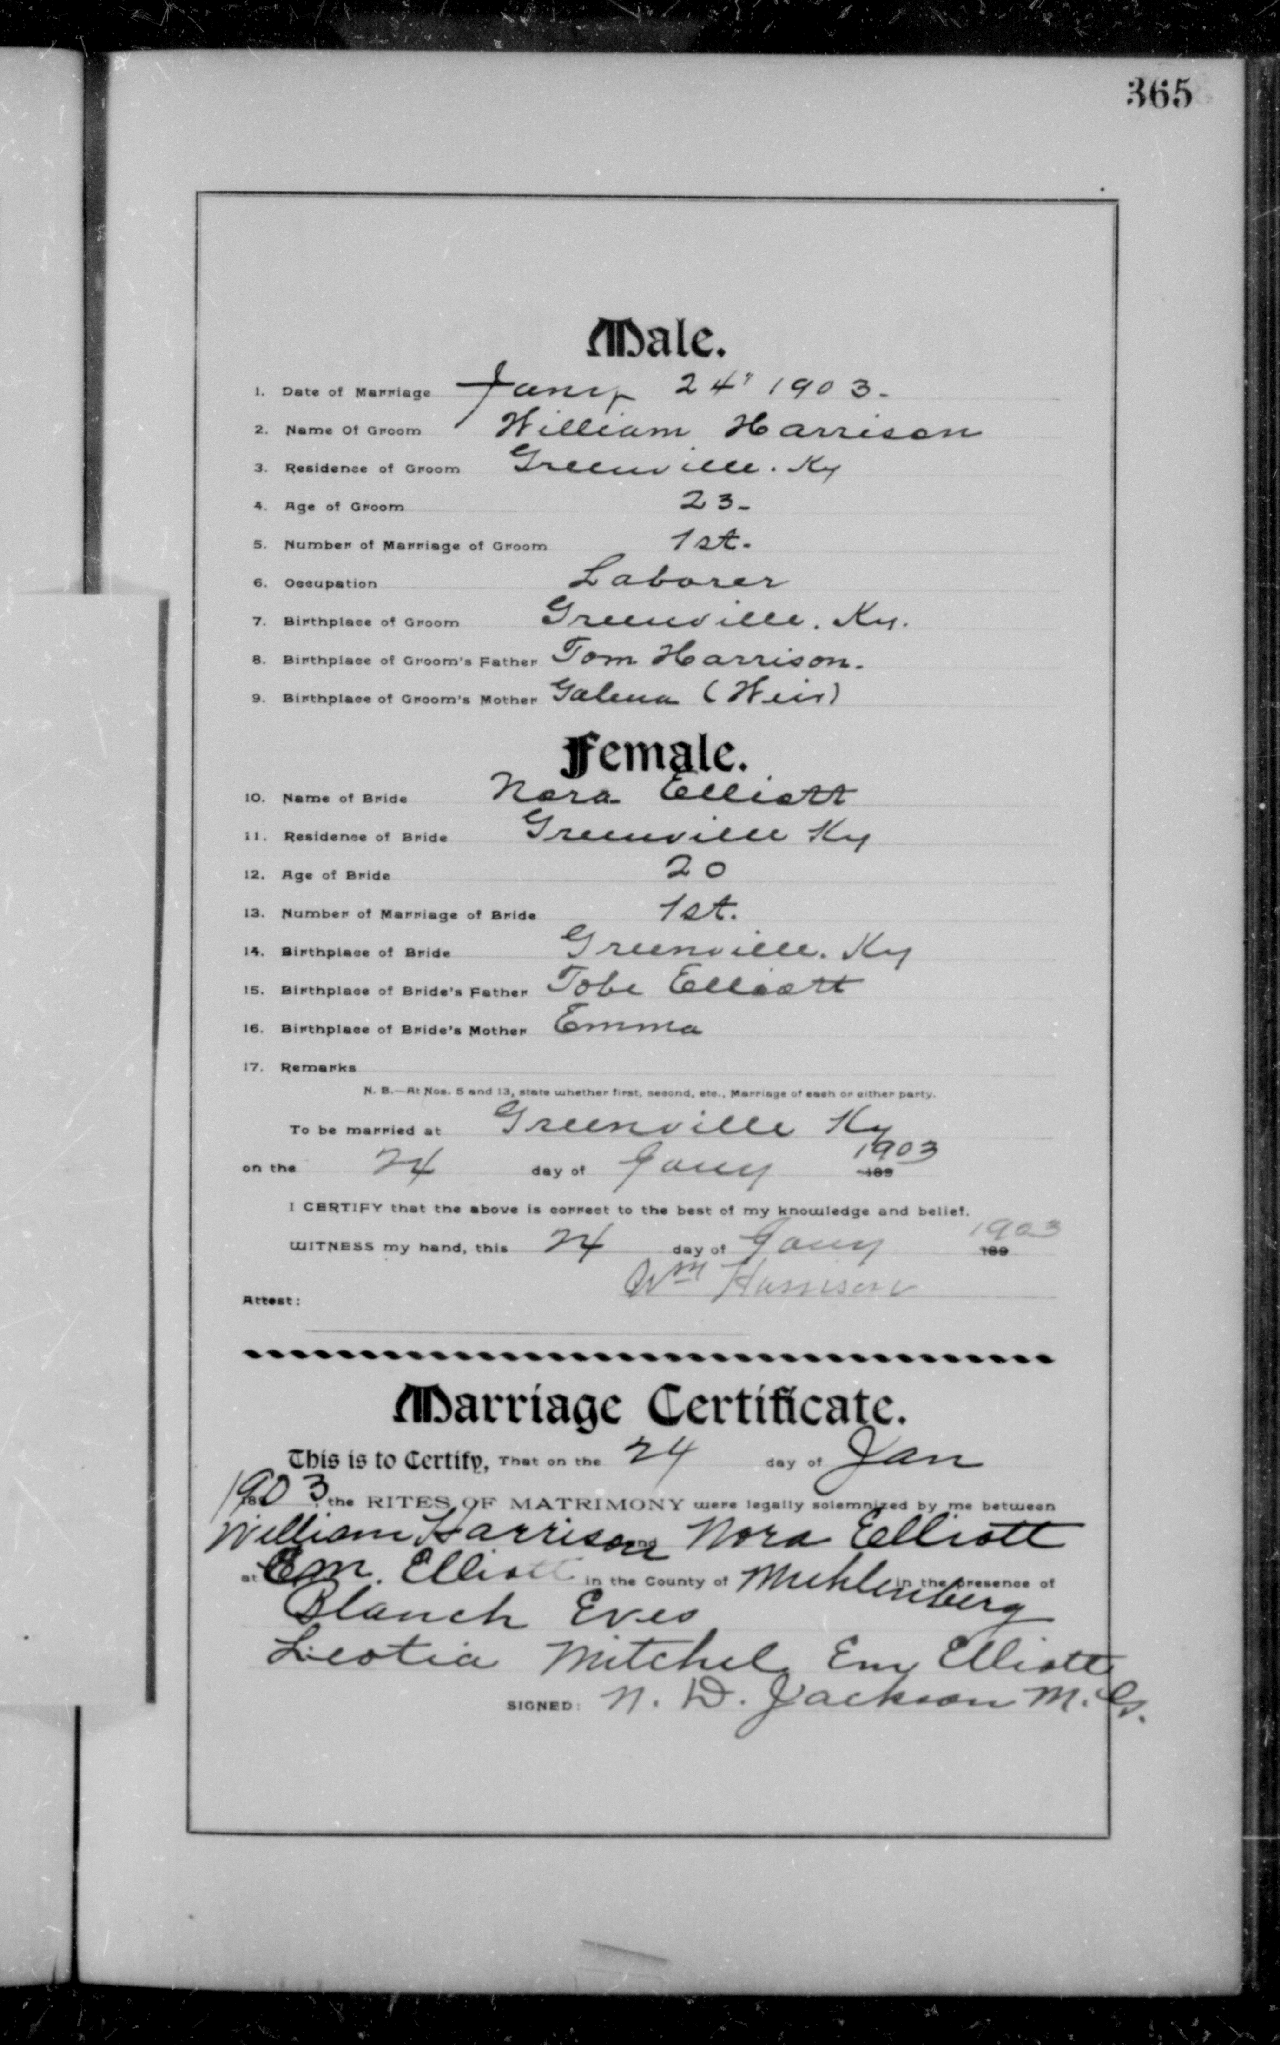 365
Male.
1. Date of Marriage Jany 24" 1903.
2. Name Of Groom William Harrison
3. Residence of Groom Greenville. Ky
4. Age of Groom 23-
5. Number of Marriage of Groom 1st.
6. Occupation Laborer
7. Birthplace of Groom Greenville. Ky.
8. Birthplace of Groom's Father Tom Harrison.
9. Birthplace of Groom's Mother Galena (Weir)
Female.
10. Name of Bride Nora Elliott
11. Residence of Bride Greenville Ky
12. Age of Bride 20
13. Number of Marriage of Bride 1st.
14. Birthplace of Bride Greenville. Ky
15. Birthplace of Bride's Father Tobe Elliott
16. Birthplace of Bride's Mother Emma
17. Remarks
N. B.—At Nos. 5 and 13, state whether first, second, etc., Marriage of each or either party.
To be married at Greenville Ky
on the 24 day of Jany 1903 189
I CERTIFY that the above is correct to the best of my knowledge and belief.
WITNESS my hand, this 24 day of Jany 1903 189
Wm Harrison
Attest:
Marriage Certificate.
This is to Certify, That on the 24 day of Jan
1903, the RITES OF MATRIMONY were legally solemnized by me between
William Harrison and Nora Elliott
at Em. Elliott in the County of Muhlenberg in the presence of
Blanch Eves
Leotia Mitchel Em Elliott
SIGNED: N. D. Jackson M. G.